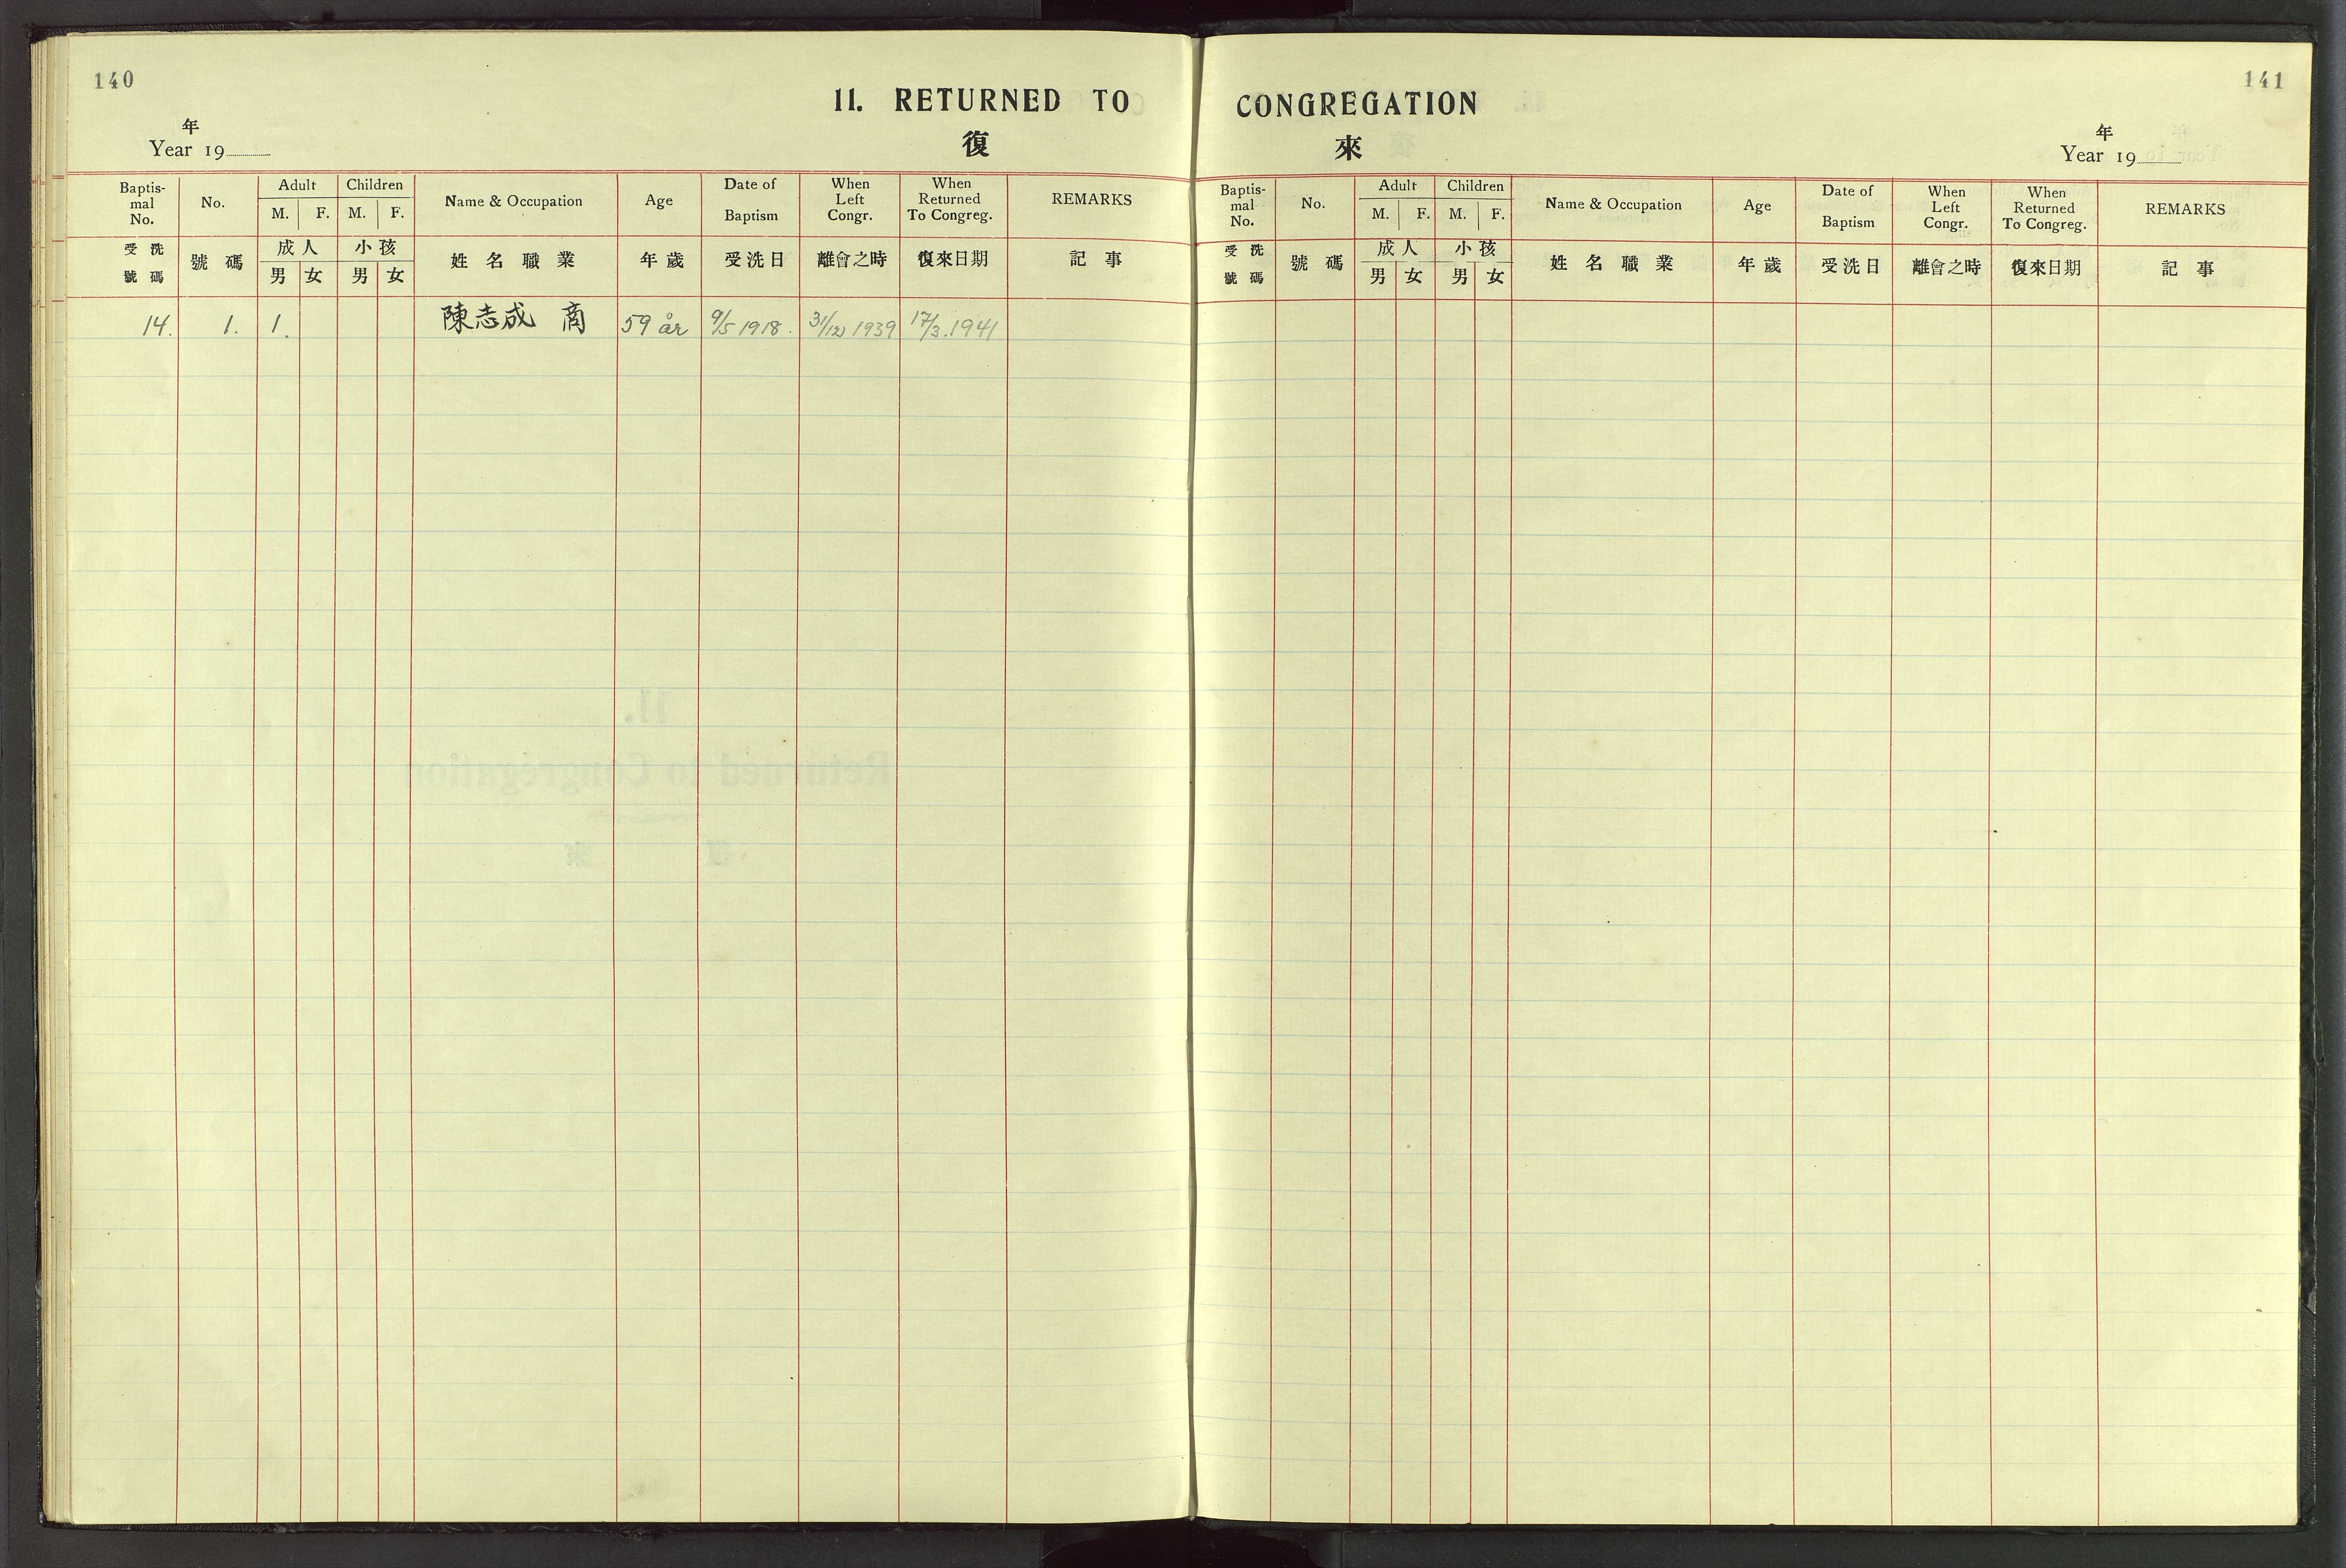 140
11. RETURNED TO
復
年
Year 19
Baptis-
mal
No.
No.
Adult
M. F.
Children
M. F.
Name & Occupation
Age
Date of
Baptism
When
Left
Congr.
When
Returned
To Congreg.
REMARKS
受洗
號碼
號碼
成人
男 女
小孩
男 女
姓名職業
年歲
受洗日
離會之時
復來日期
記事
14. 1. 1. 陳志成 商 59 år 9/5 1918. 31/12 1939 17/3. 1941
141
CONGREGATION
來
年
Year 19
Baptis-
mal
No.
No.
Adult
M. F.
Children
M. F.
Name & Occupation
Age
Date of
Baptism
When
Left
Congr.
When
Returned
To Congreg.
REMARKS
受洗
號碼
號碼
成人
男 女
小孩
男 女
姓名職業
年歲
受洗日
離會之時
復來日期
記事